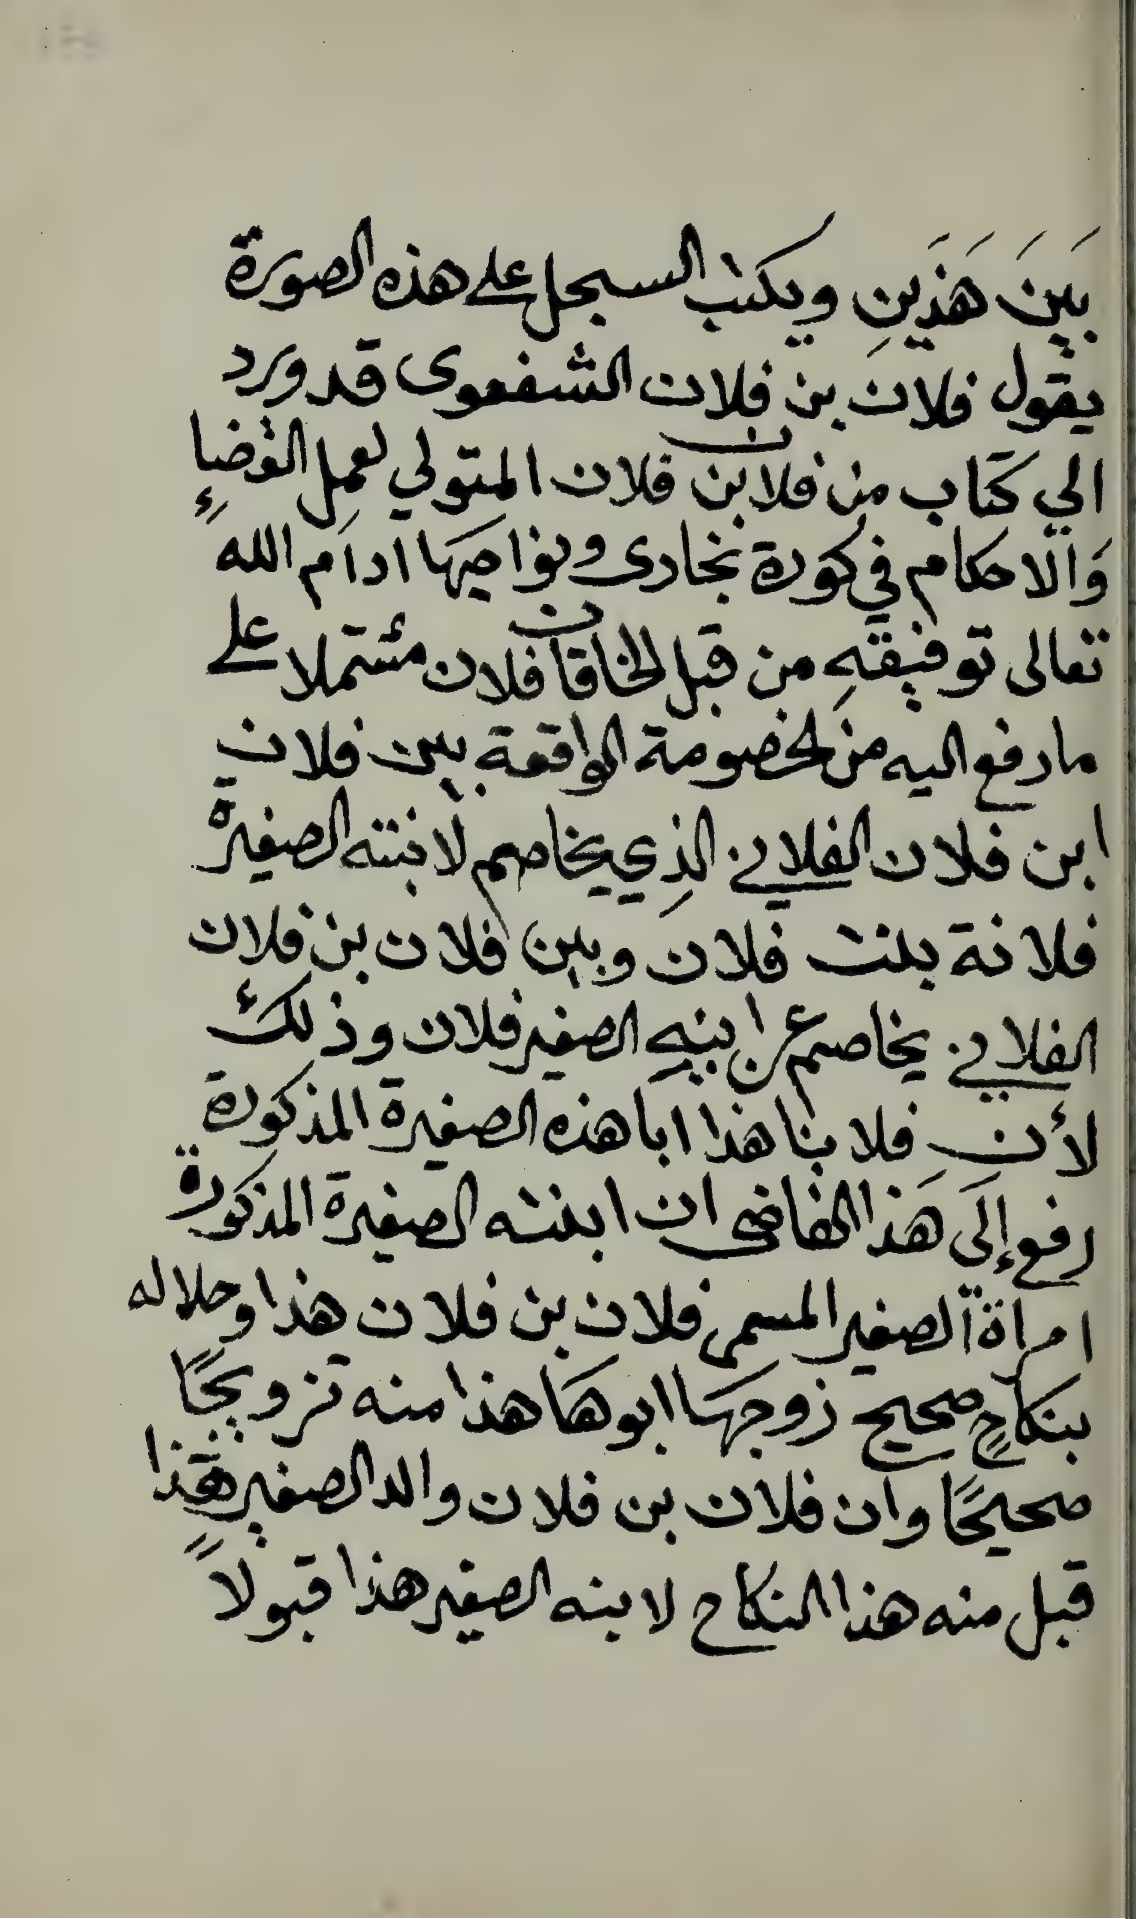 بَيَنَ هَذَينِ ويكتب السجل على هذه الصورة
يقول فلان بن فلان الشفعوى قد ورد
الي كتاب من فلان بن فلان المتولي لعمل القضاءِ
وَالاحكام في كورة بخارى ونواحيها ادام الله
تعالى توفيقه من قبل الخاقان فلان مشتملا على
ما رفع اليه من الخصومة الواقعة بين فلان
ابن فلان الفلاني الذي يخاصم لابنته الصغيرة
فلانة بنت فلان وبين فلان بن فلان
الفلاني يخاصم عن ابنهِ الصغير فلان وذلك
لأن فلانا هذا ابا هذه الصغيرة المذكورة
رفع إلَى هَذا القاضى ان ابنته الصغيرة المذكورة
امراة الصغير المسمى فلان بن فلان هذا وحلاله
بنكاحٍ صحيح زوجها ابوها هذا منه تزويجًا
صحيحًا وان فلان بن فلان والد الصغير هذا
قبل منه هذا النكاح لابنه الصغير هذا قبولاً